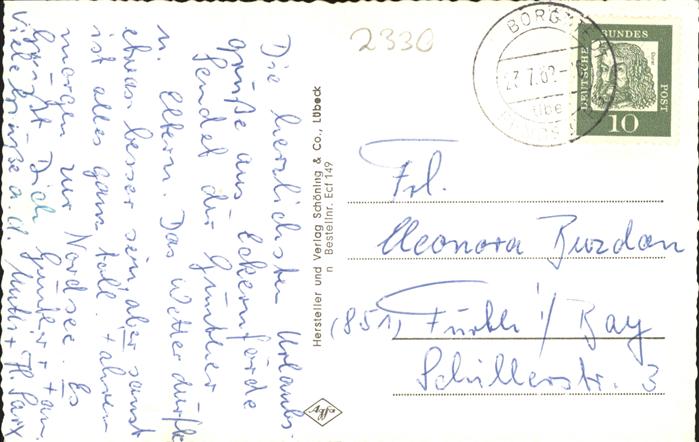 Die herzlichsten Urlaubs-
grüße aus Eckernförde
sendet dir Günther
u. Eltern. Das Wetter dürfte
etwas besser sein, aber sonst
ist alles ganz toll. fahren
morgen zur Nordsee. Es
grüßt Dich Günther + am.
viele Grüße a. d.
Hersteller und Verlag Schöning & Co., Lübeck
n Bestellnr. Ecf 149
Agfa
2330
BORG
23.7.62
über
DEUTSCHE BUNDES POST
Dürer
10
Frl.
Eleonora Burdan
(851) Fürth i/Bay
Schillerstr. 3